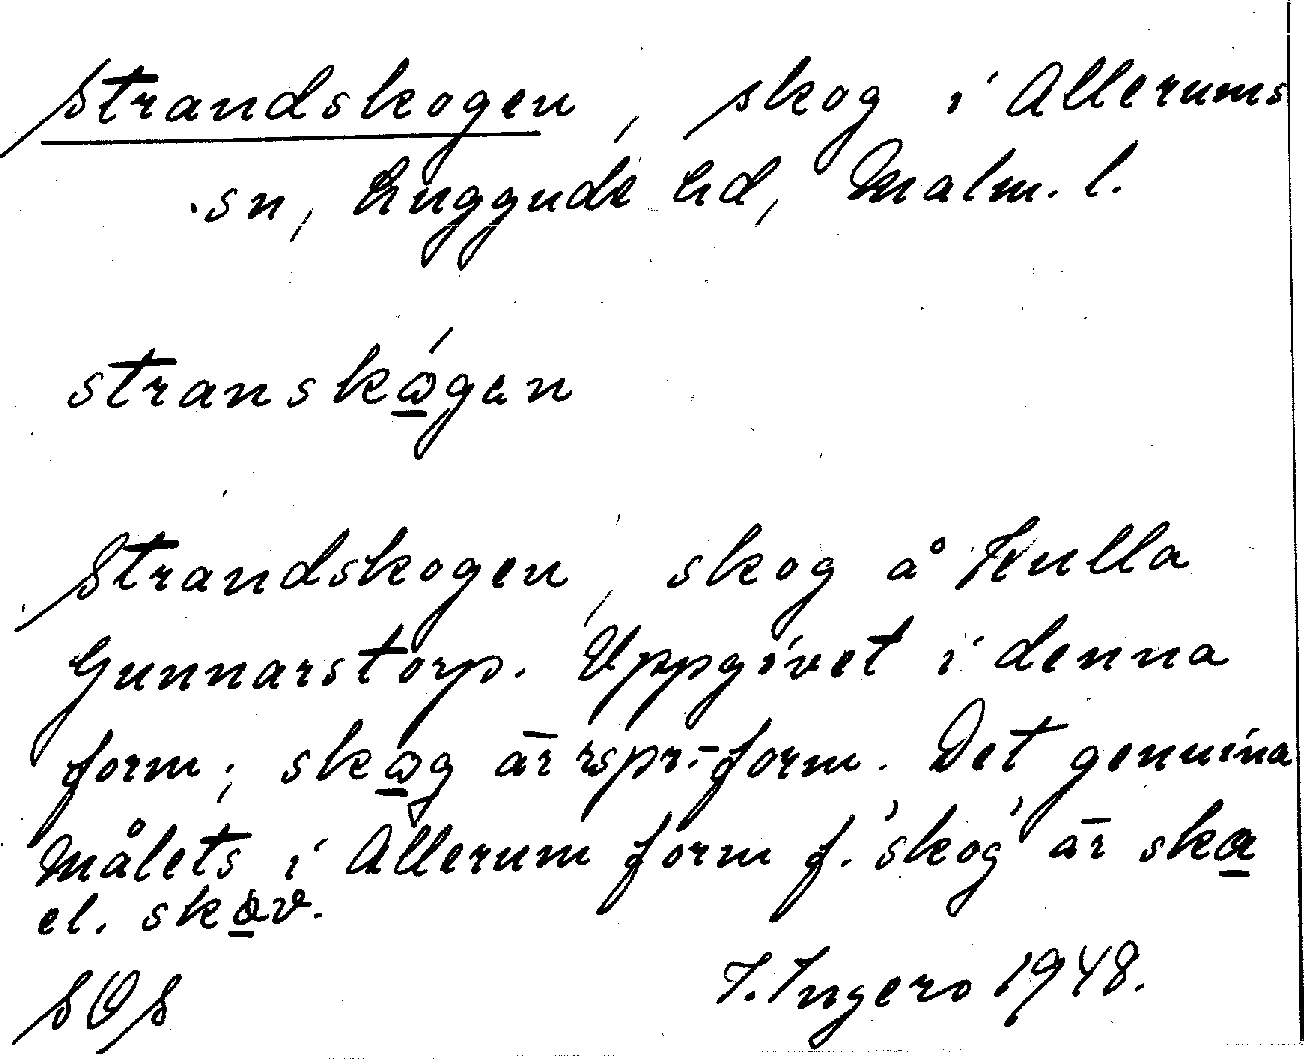 Strandskogen, skog i Allerums
sn, Luggude hd, Malm. l.
stranskǫ́gən
Strandskogen, skog å Kulla
Gunnarstorp. Uppgivet i denna
form; skǫg är rspr.-form. Det genuina
målets i Allerum form f. 'skog' är ska
el. skǫv.
SOS I. Ingers 1948.